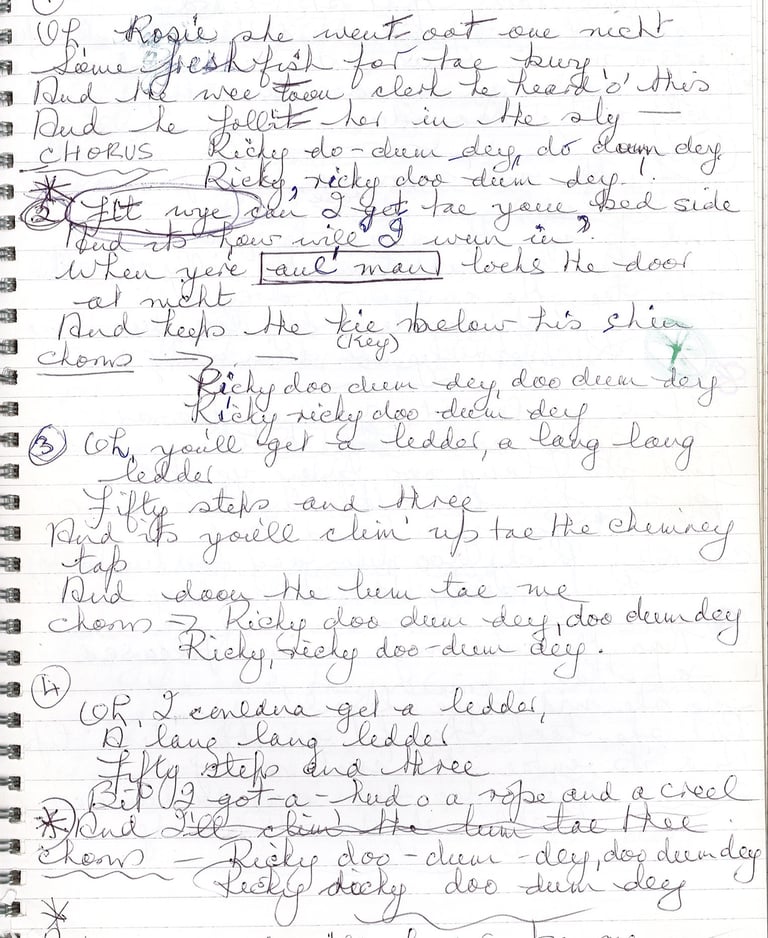 ①
Oh Rosie she went oot one nicht
Some fresh fish for tae buy
And the wee toon clerk he heard 'o' this
And he follit her in the sly —
CHORUS Ricky do-dum dey, do dum dey
Ricky, ricky doo dum dey!
② Fit wye can I get tae your bed side
And its how will I wun in"
When yere aul' man locks the door
at nicht
And keeps the kie below his shin
(Key)
Chorus → —
Ricky doo dum dey, doo dum dey
Ricky ricky doo dum dey
③ Oh, you'll get a ledder, a lang lang
ledder
Fifty steps and three
And its you'll clim' up tae the chimney
tap
And doon the lum tae me
Chorus → Ricky doo dum dey, doo dum dey
Ricky, ricky doo-dum dey.
④
Oh, I couldna get a ledder,
A lang lang ledder
Fifty steps and three
But I got-a-hud o a rope and a creel
And I'll clim' the lum tae thee.
Chorus — Ricky doo-dum-dey, doo dum dey
Ricky ricky doo dum dey